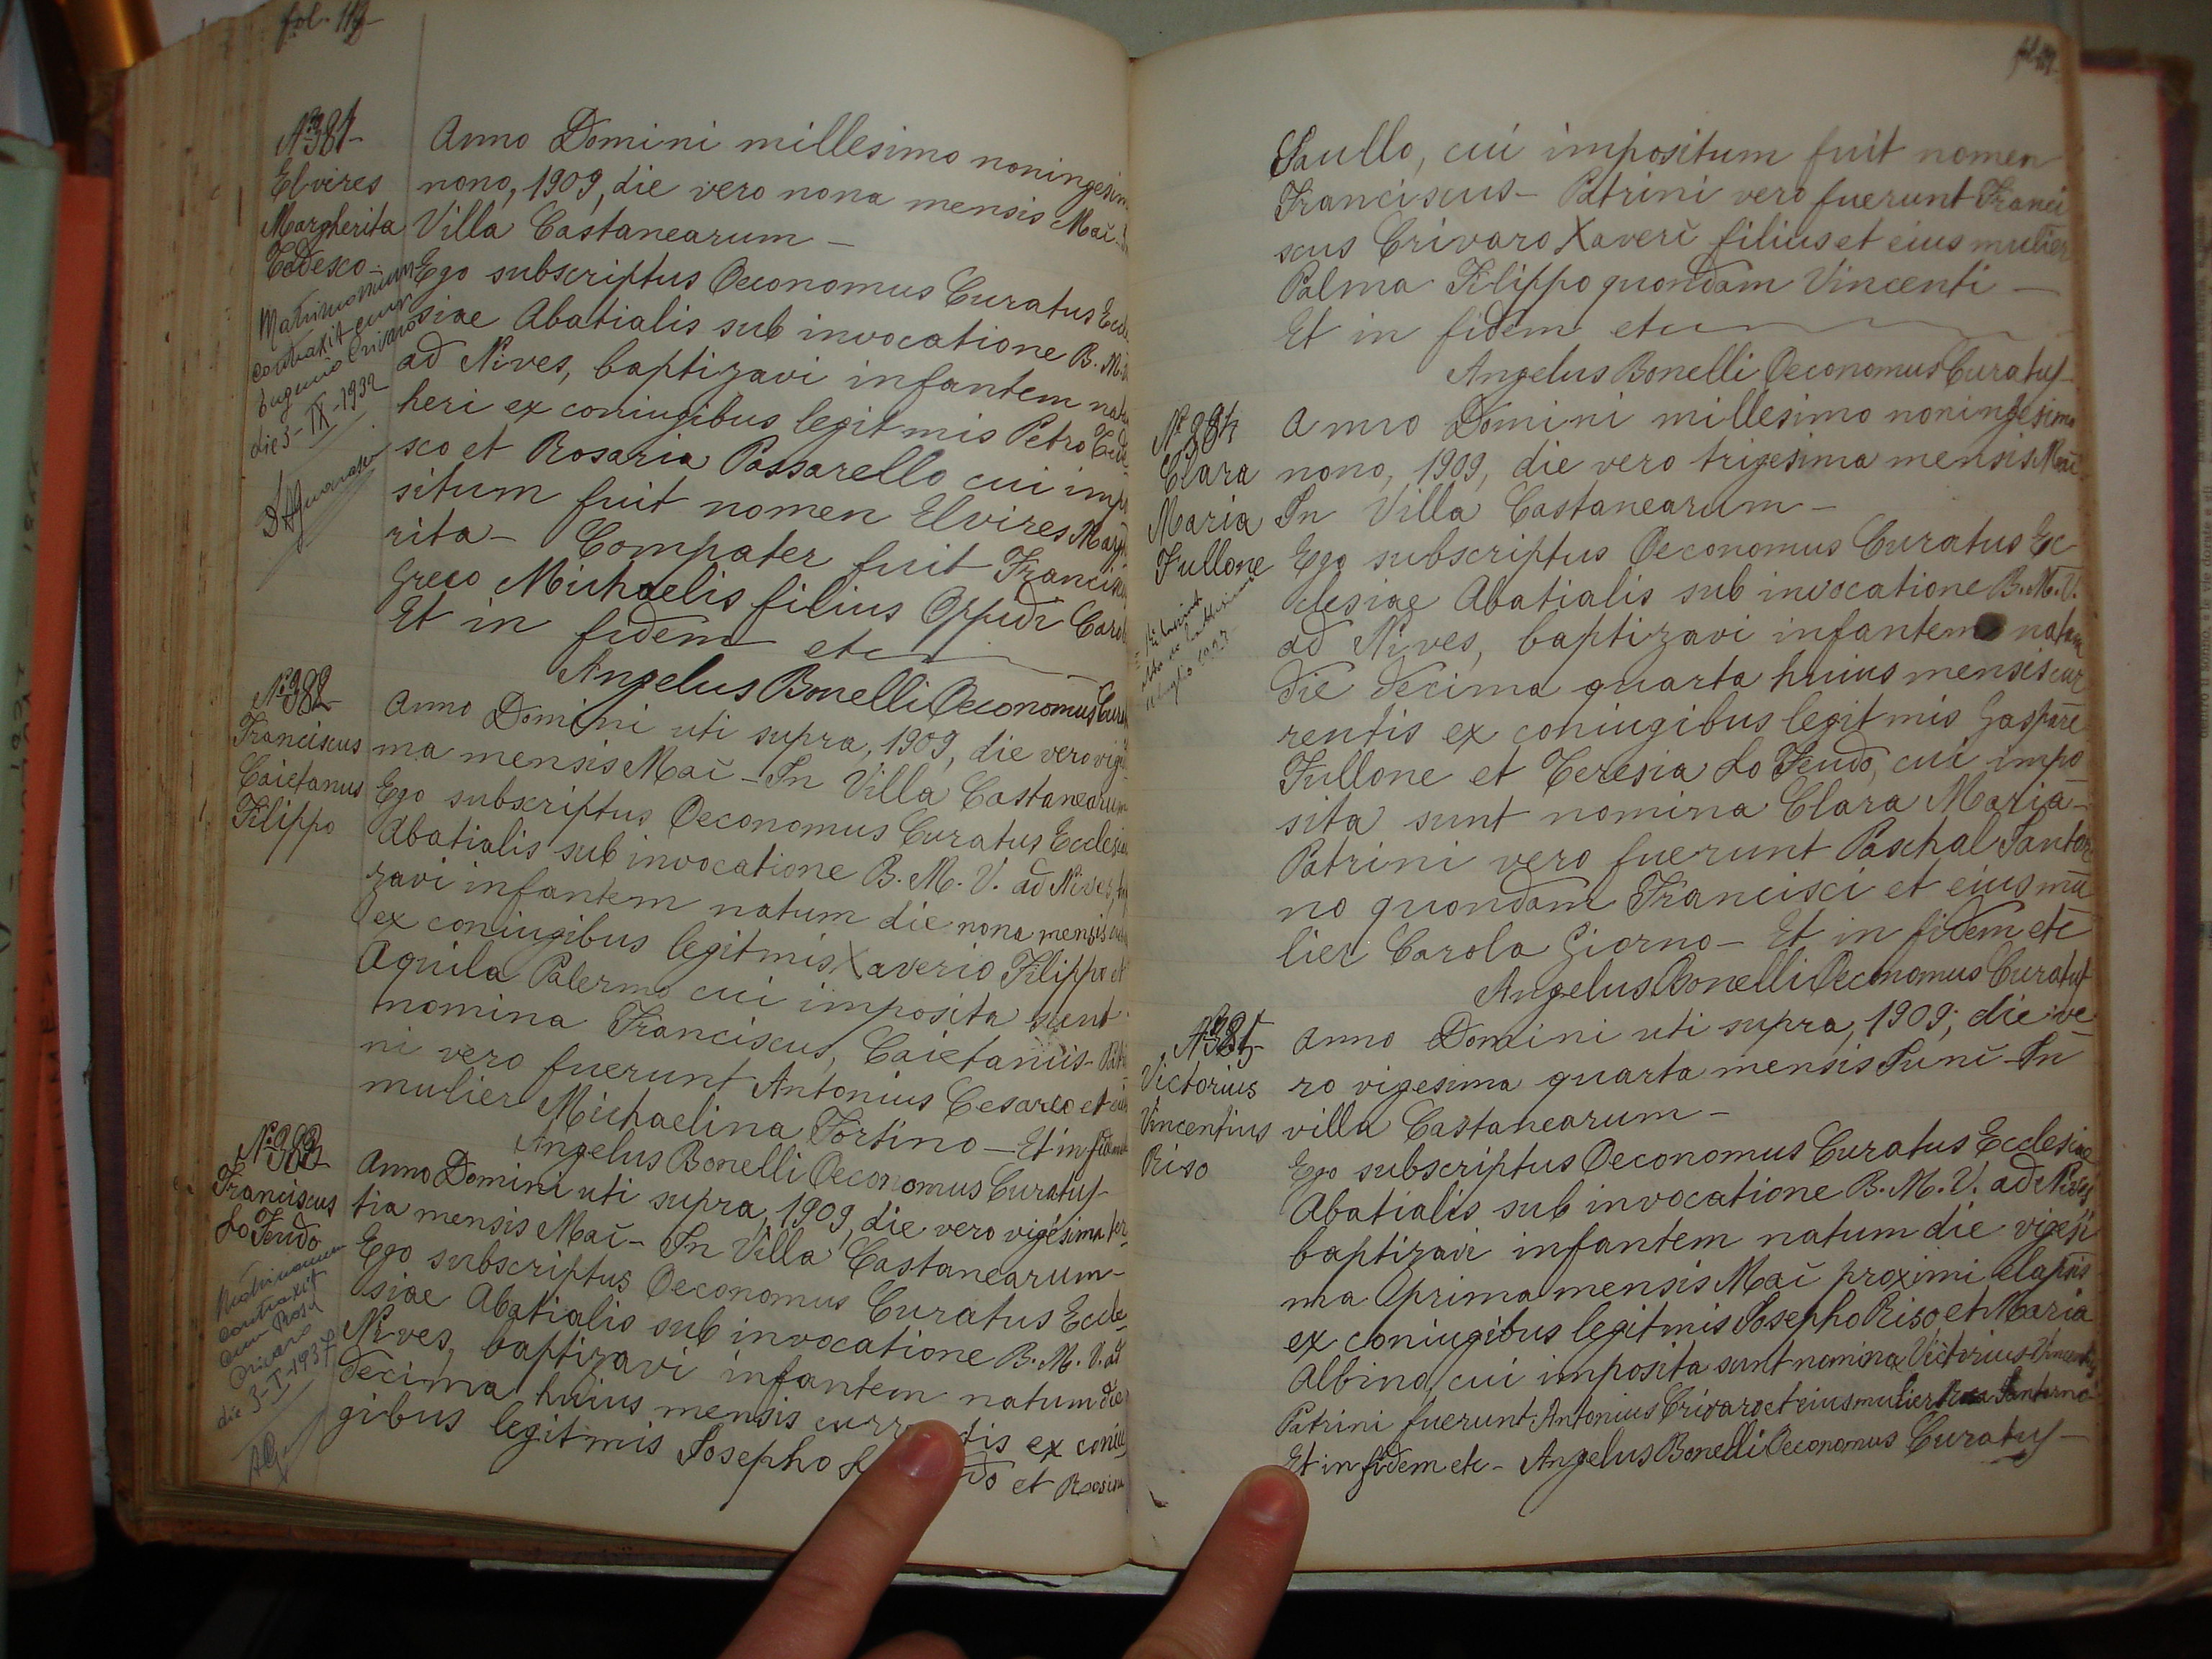 fol. 118
N° 381-
Elvires
Margherita
Tedesco-
Matrimonium
contraxit cum
Eugenio Crivaro
die 3-IX-1932
Anno Domini millesimo noningesim
nono, 1909, die vero nona mensis Maii-
Villa Castanearum -
Ego subscriptus Oeconomus Curatus Eccle
siae Abatialis sub invocatione B. M. V.
ad Nives, baptizavi infantem nata
heri ex coniugibus legitmis Petro Tede
sco et Rosaria Passarello cui impo
situm fuit nomen Elvires Marghe
rita- Compater fuit Francisc
Greco Michaelis filius Oppidi Caro
Et in fidem etc
Angelus Bonelli Oeconomus Cura
N° 382-
Franciscus
Caietanus
Filippo
Anno Domini uti supra, 1909, die vero vige
ma mensis Maii - In Villa Castanearum
Ego subscriptus Oeconomus Curatus Ecclesiae
Abatialis sub invocatione B. M. V. ad Nives,
zavi infantem natum die nona mensis
ex coniugibus legitmis Xaverio Filippo et
Aquila Palermo cui imposita sunt
nomina Franciscus, Caietanus- Patri
ni vero fuerunt Antonius Cesareo et eius
mulier Michaelina Fortino - Et in fidem
Angelus Bonelli Oeconomus Curatus-
N° 383-
Franciscus
Lo Feudo
Matrimonium
contraxit
cum Rosa
Crivaro
die 3-I-1937
Anno Domini uti supra, 1909, die vero vigesima ter
tia mensis Maii- In Villa Castanearum-
Ego subscriptus Oeconomus Curatus Eccle-
siae Abatialis sub invocatione B. M. V. ad
Nives, baptizavi infantem natum die
decima huius mensis ex coniu
gibus legitmis Josepho et Rosina
Saullo, cui impositum fuit nomen
Franciscus- Patrini vero fuerunt Franci
scus Crivaro Xaverii filius et eius mulier
Palma Filippo quondam Vincenti -
Et in fidem etc
Angelus Bonelli Oeconomus Curatus-
N° 384
Clara
Maria
Fullone
Anno Domini millesimo noningesimo
nono, 1909, die vero trigesima mensis Maii
In Villa Castanearum -
Ego subscriptus Oeconomus Curatus Ec
clesiae Abatialis sub invocatione B. M. V.
ad Nives, baptizavi infantem natam
die decima quarta huius mensis cur
rentis ex coniugibus legitmis Gaspare
Fullone et Teresia Lo Feudo, cui impo
sita sunt nomina Clara Maria-
Patrini vero fuerunt Paschal Santor
no quondam Francisci et eius mu
lier Carola Giorno- Et in fidem etc
Angelus Bonelli Oeconomus Curatus
N° 385-
Victorius
Vincentius
Riso
Anno Domini uti supra, 1909, die ve
ro vigesima quarta mensis Junii- In
villa Castanearum -
Ego subscriptus Oeconomus Curatus Ecclesiae
Abatialis sub invocatione B. M. V. ad Nives
baptizavi infantem natum die vigesi
ma prima mensis Maii proximi elapsis
ex coniugibus legitmis Josepho Riso et Maria
Albino, cui imposita sunt nomina Victorius Vincentius
Patrini fuerunt Antonius Crivaro et eius mulier Rosa Santorno
Et in fidem etc - Angelus Bonelli Oeconomus Curatus-